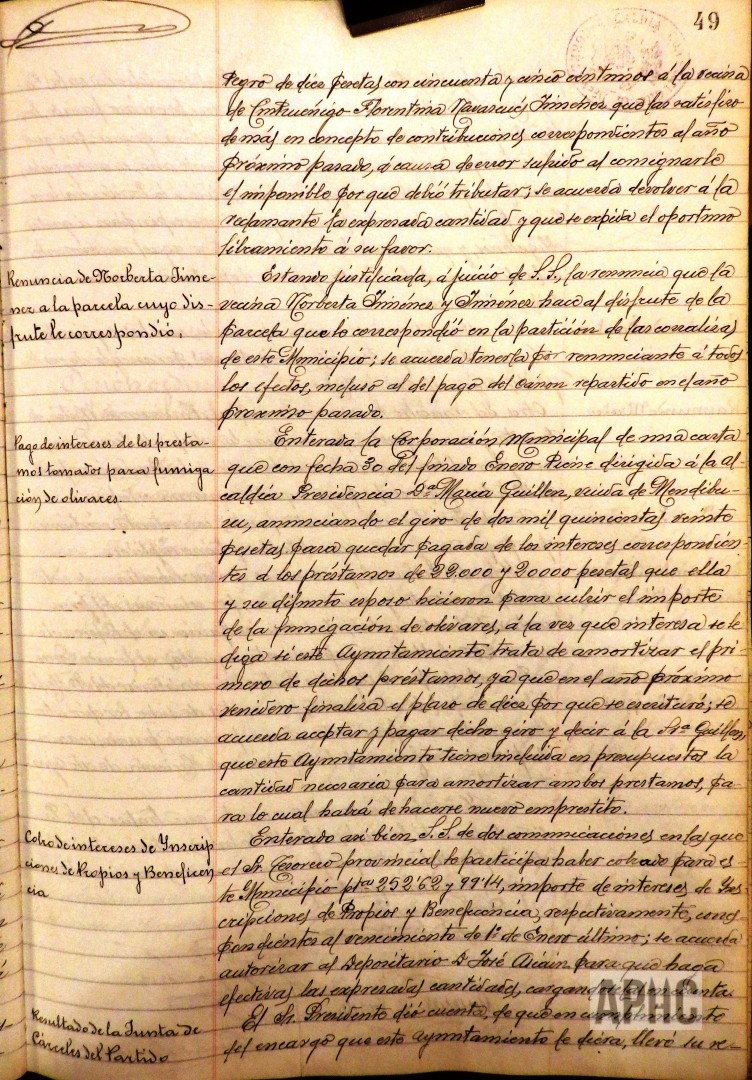 49
tegro de diez pesetas con cincuenta y cinco céntimos á la vecina
de Cintruénigo Florentina Navascués Jiménez que las satisfizo
de más en concepto de contribuciones correspondientes al año
próximo pasado, á causa de error sufrido al consignarle
el imponible por que debió tributar; se acuerda devolver á la
reclamante la expresada cantidad y que se expida el oportuno
libramiento á su favor.
Renuncia de Norberta Jime-
nez a la parcela cuyo dis-
frute le correspondió,
Estando justificada, á juicio de S.S., la renuncia que la
vecina Norberta Jiménez y Jiménez hace al disfrute de la
parcela que le correspondió en la partición de las corralizas
de este Municipio; se acuerda tenerla por renunciante á todos
los efectos, incluso al del pago del cánon repartido en el año
próximo pasado.
Pago de intereses de los presta-
mos tomados para fumiga
ción de olivares.
Enterada la Corporación Municipal de una carta
que con fecha 30 del finado Enero tiene dirigida á la al-
caldía Presidencia Dª María Guillen, viuda de Mendibu-
ru, anunciando el giro de dos mil quinientas veinte
pesetas para quedar pagada de los intereses correspondien-
tes á los préstamos de 22.000 y 20000 pesetas que ella
y su difunto esposo hicieron para cubrir el importe
de la fumigación de olivares, á la vez que interesa se le
diga si este Ayuntamiento trata de amortizar el pri-
mero de dichos préstamos, ya que en el año próximo
venidero finaliza el plazo de diez por que se escrituró; se
acuerda aceptar y pagar dicho giro y decir á la Srª Guillen,
que este Ayuntamiento tiene incluida en presupuestos la
cantidad necesaria para amortizar ambos prestamos, pa-
ra lo cual habrá de hacerse nuevo empréstito.
Cobro de intereses de Ynscrip
ciones de Propios y Beneficen
cia
Enterado asi bien, S.S. de dos comunicaciones en las que
el Sr. Tesorero provincial le participa haber cobrado para es-
te Municipio ptas 252'62 y 99'14, importe de intereses de Ins-
cripciones de Propios y Beneficencia, respectivamente, corres-
pondientes al vencimiento de 1º de Enero último; se acuerda
autorizar al Depositario D. José Asiáin para que haga
efectivas las expresadas cantidades, cargandose en cuenta.
Resultado de la Junta de
Cárceles del Partido
El Sr. Presidente dió cuenta, de que en
del encargo que este Ayuntamiento le diera, llevó su re-
APHC